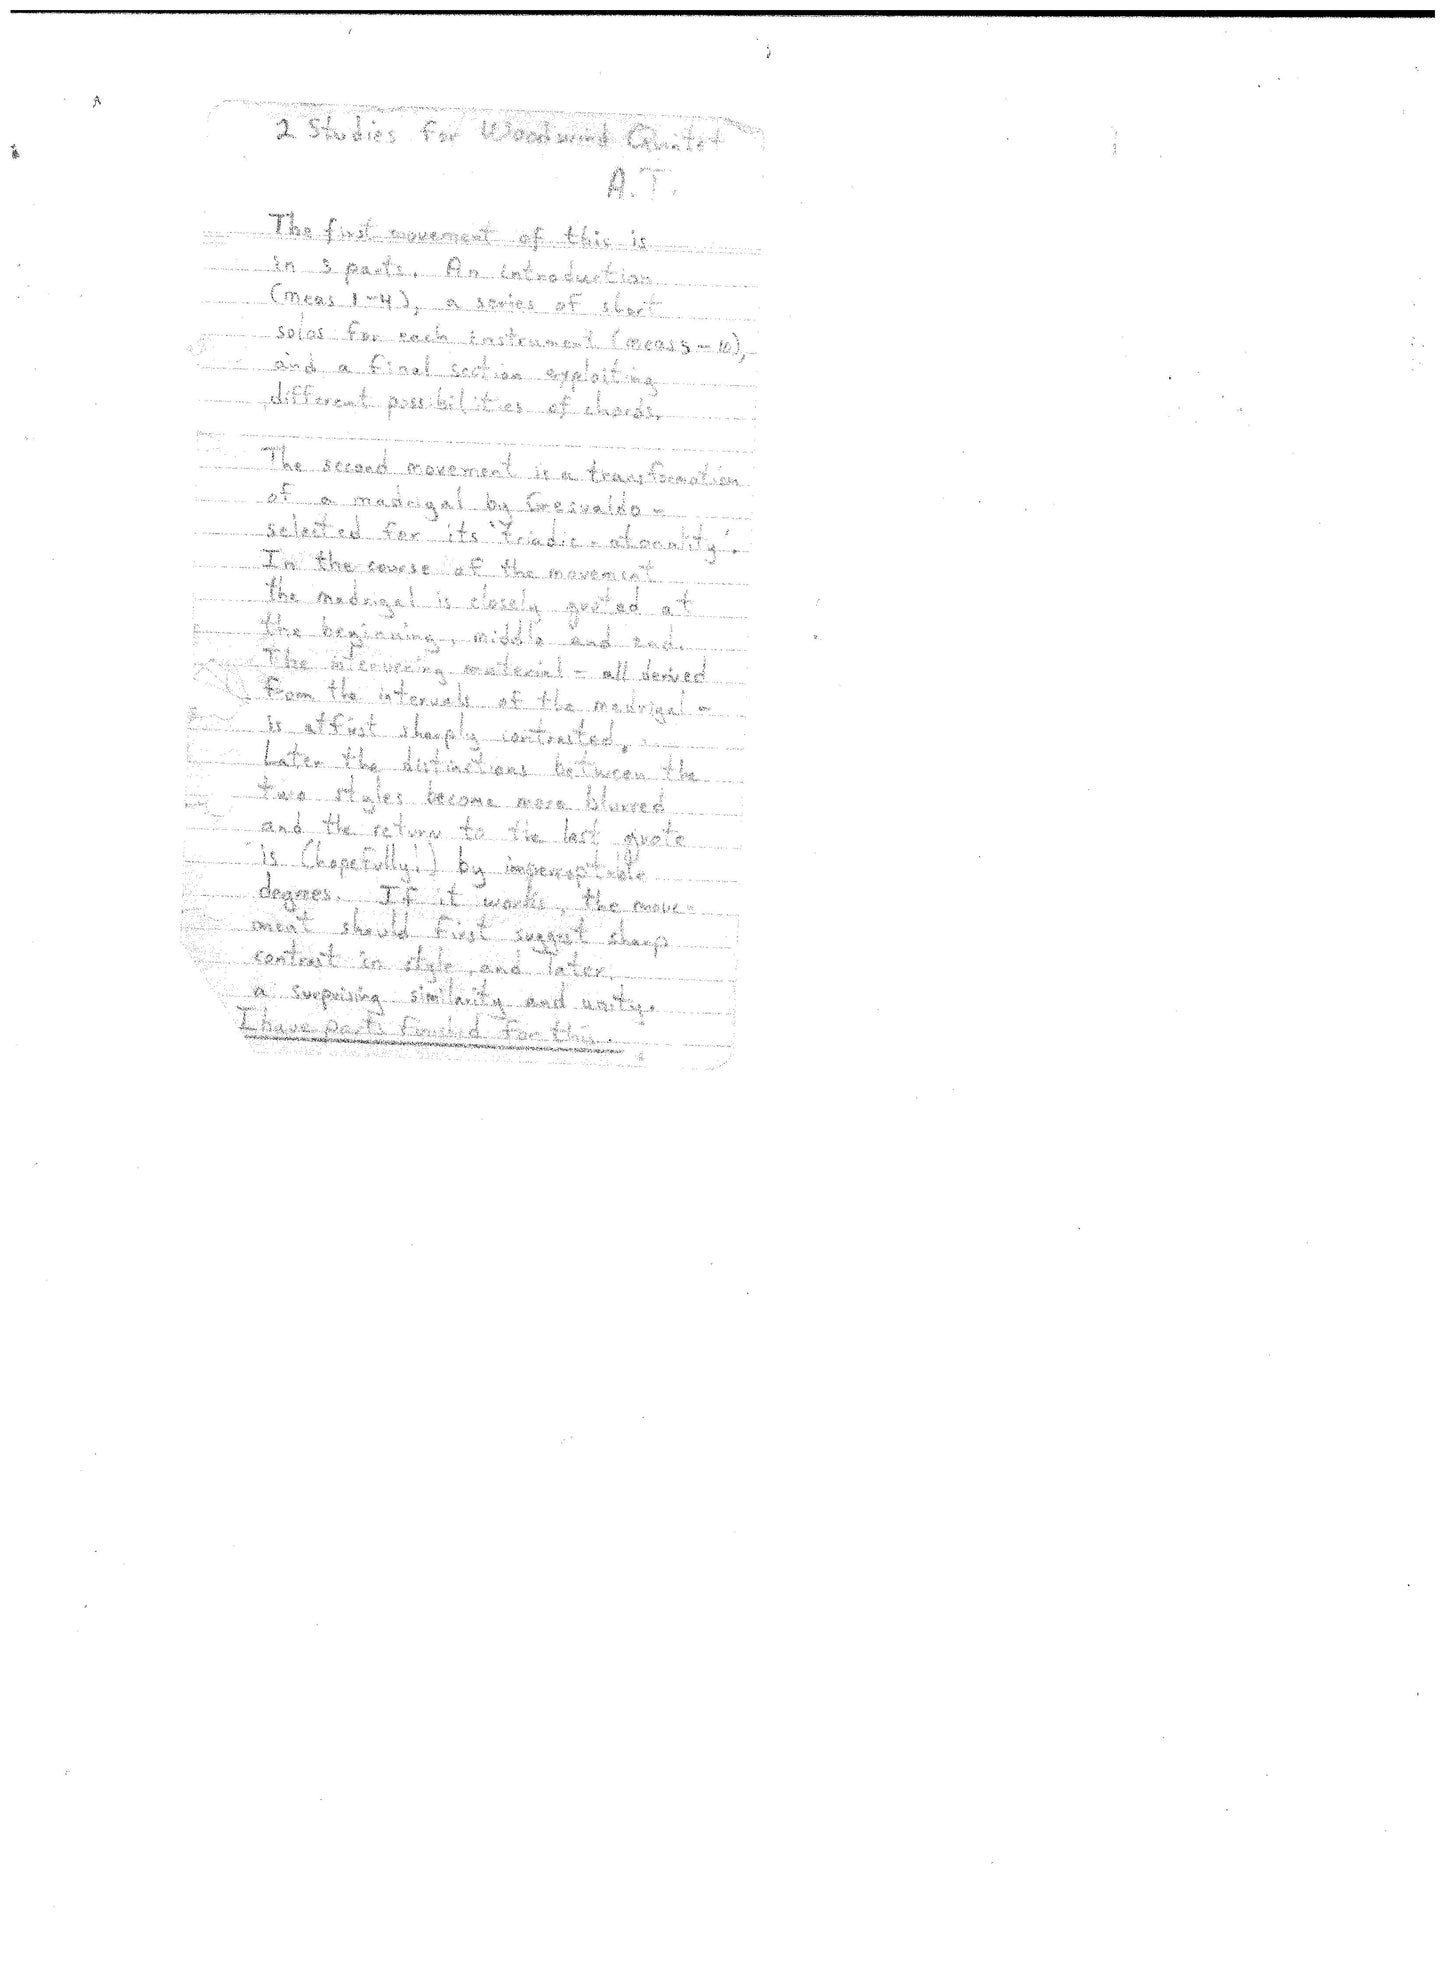 2 Studies for Woodwind Quintet
A.T.
The first movement of this is
in 3 parts. An introduction
(meas 1-4), a series of short
solos for each instrument (meas 5-10),
and a final section exploiting
different possibilities of chords.
The second movement is a transformation
of a madrigal by Gesualdo -
selected for its 'triadic-atonality'.
In the course of the movement
the madrigal is closely quoted at
the beginning, middle and end.
The intervening material - all derived
from the intervals of the madrigal -
is at first sharply contrasted.
Later the distinctions between the
two styles become more blurred
and the return to the last quote
is (hopefully!) by imperceptible
degrees. If it works, the move-
ment should first suggest sharp
contrast in style, and later,
a surprising similarity and unity.
I have parts finished for this.